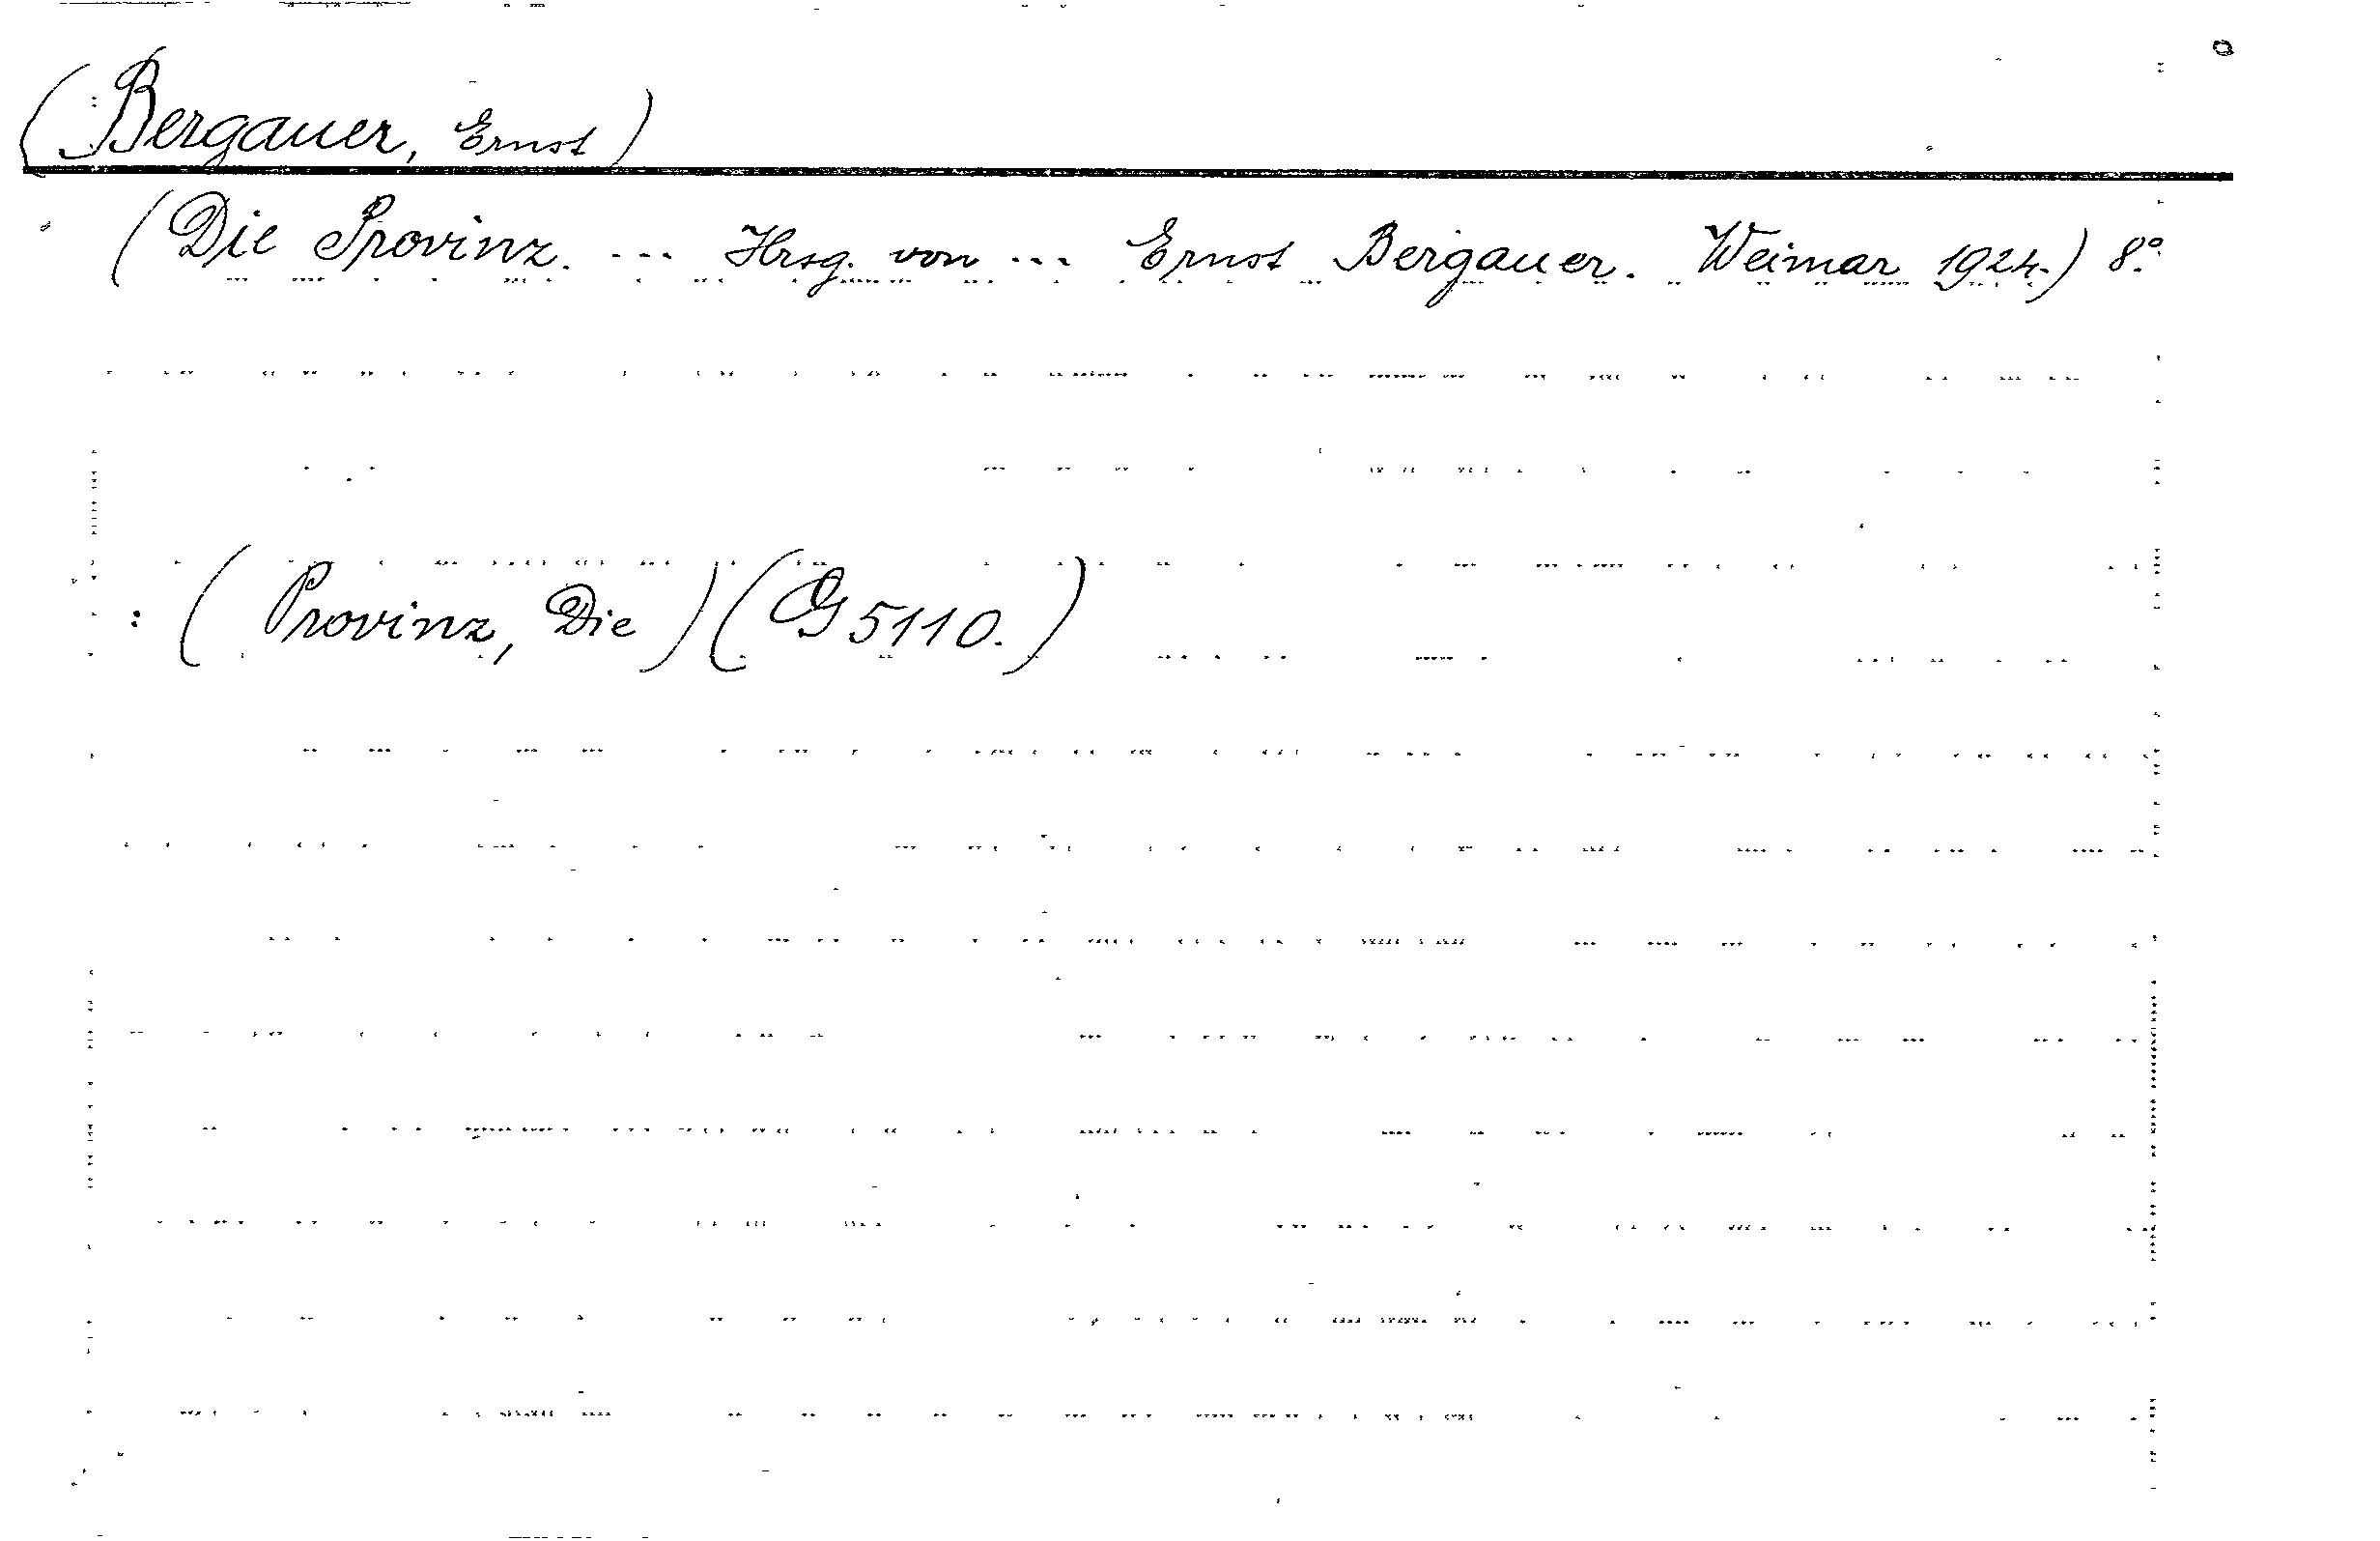 (Bergauer, Ernst)
(Die Provinz. ... Hrsg. von ... Ernst Bergauer. Weimar 1924.) 8°.
: (Provinz, Die) (G 5110.)